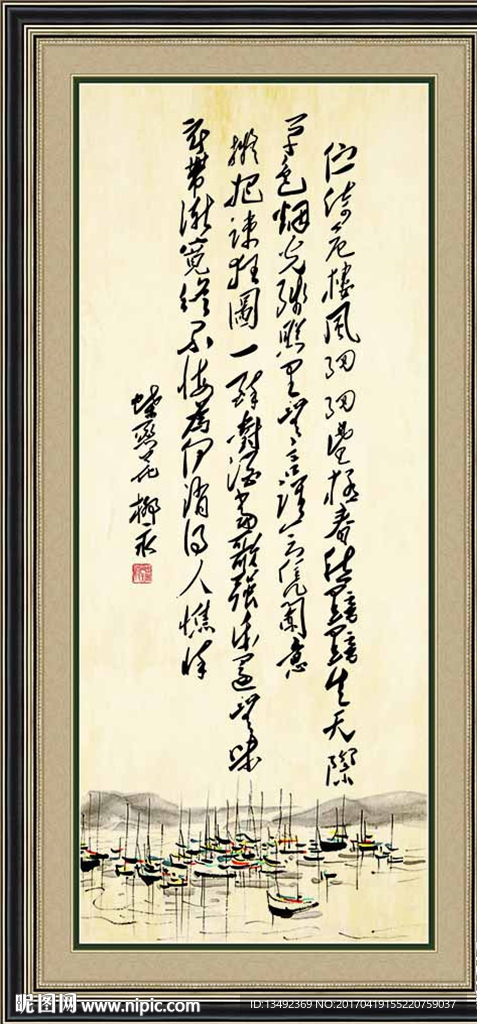 伫倚危樓風細細望極春愁黯黯生天際
草色烟光殘照里無言誰会凭闌意
擬把疎狂圖一醉對酒當歌強乐還無味
衣帶漸寬終不悔為伊消得人憔悴
蝶恋花 柳永
昵图网 www.nipic.com
ID:13492369 NO:20170419155220759037